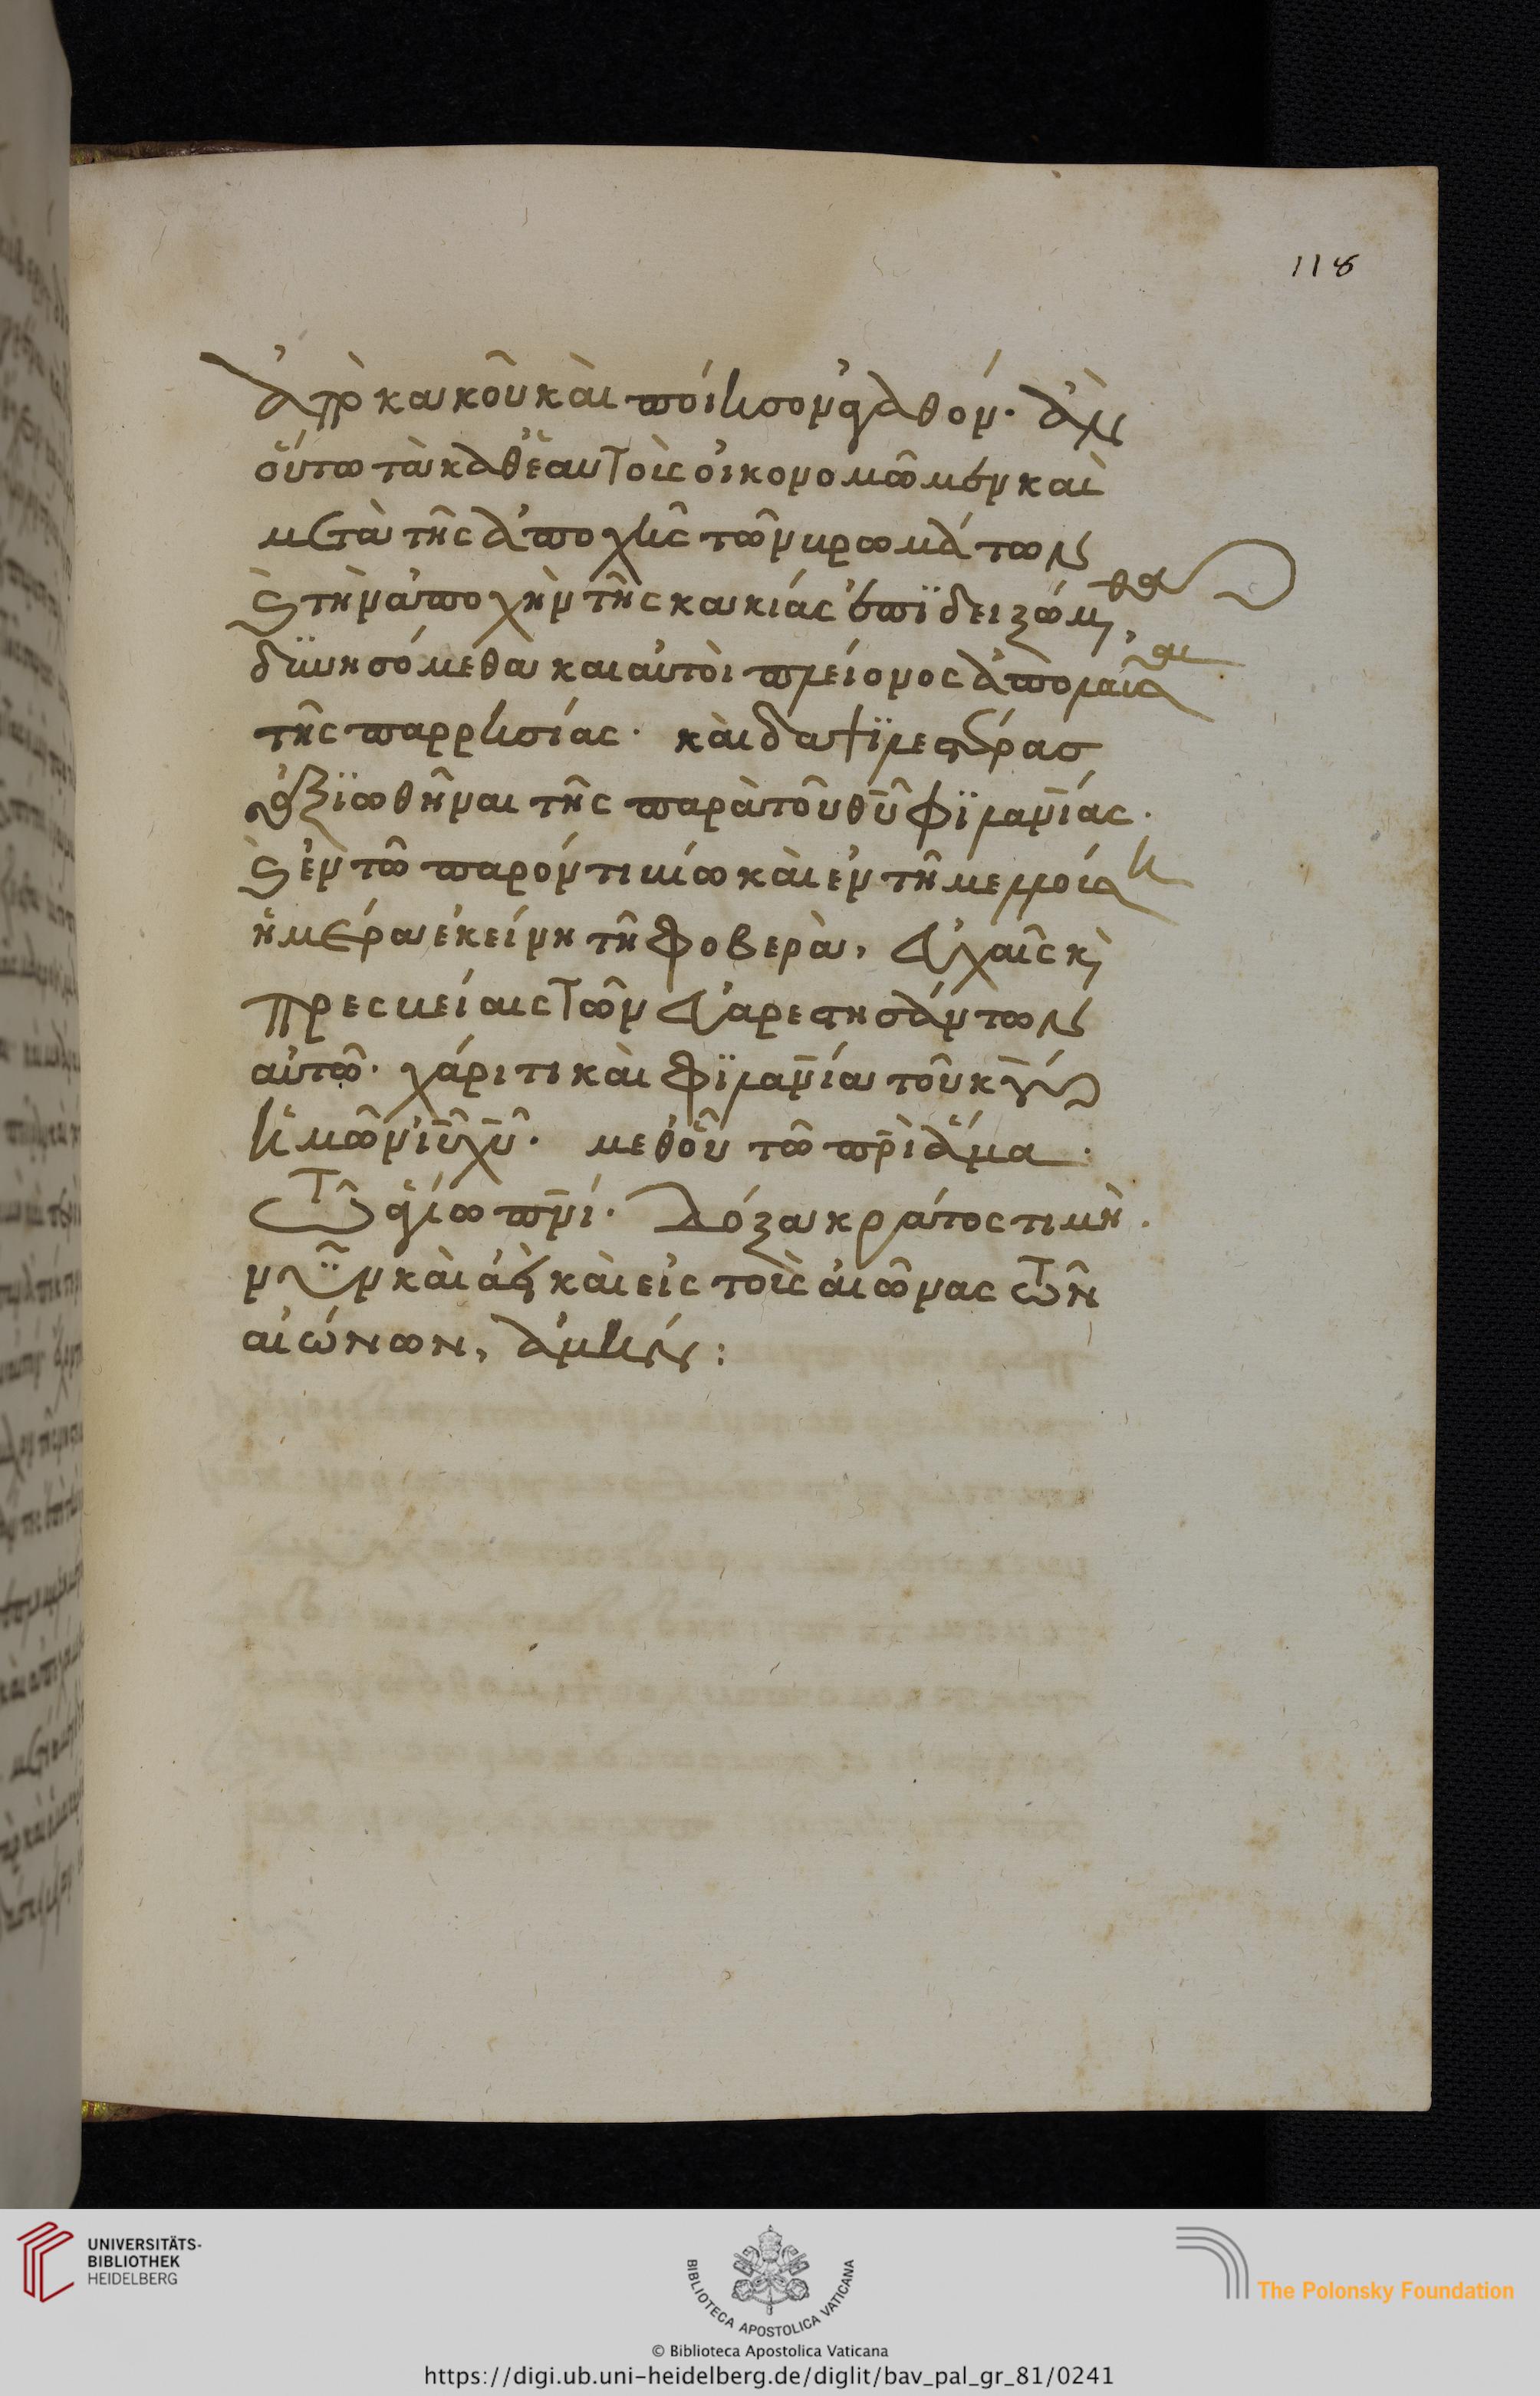 118
ἀπὸ κακοῦ καὶ ποίησον ἀγαθόν· ἂν
οὕτω τὰ καθ' ἑαυτοὺς οἰκονομῶμεν καὶ
μετὰ τῆς ἀποχῆς τῶν βρωμάτων
καὶ τὴν ἀποχὴν τῆς κακίας ἐπϊδειξώμεθα
δϋνησόμεθα καὶ αὐτοὶ πλείονος ἀπολαῦσαι
τῆς παρρησίας· καὶ δαψϊλεστέρας
ἀξϊωθῆναι τῆς παρὰ τοῦ θῦ φϊλανίας·
καὶ ἐν τῶ παρόντι βίω καὶ ἐν τῆ μελλούση
ἡμέρα ἐκείνη τῆ φοβερᾶ, εὐχαῖς καὶ
πρεσβείαις τῶν εὐαρεστησάντων
αὐτῶ· χάριτι καὶ φϊλανία τοῦ κυ
ἡμῶν ιῦ χῦ· μεθ' οὗ τῶ πρὶ ἅμα·
τῶ ἁγίω πνί· δόξα κράτος τιμὴ·
νῦν καὶ ἀεὶ καὶ εἰς τοὺς αἰῶνας τῶν
αἰώνων, ἀμήν:
UNIVERSITÄTS-
BIBLIOTHEK
HEIDELBERG
BIBLIOTECA APOSTOLICA VATICANA
The Polonsky Foundation
© Biblioteca Apostolica Vaticana
https://digi.ub.uni-heidelberg.de/diglit/bav_pal_gr_81/0241